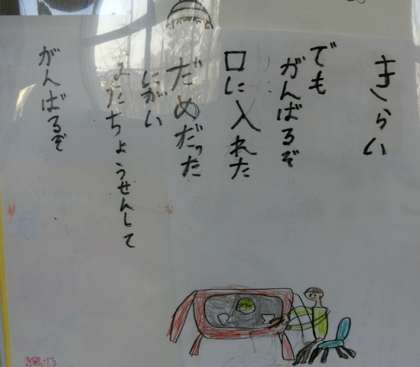 きらい
でも
がんばるぞ
口に入れた
だめだった
にがい
またちょうせんして
がんばるぞ